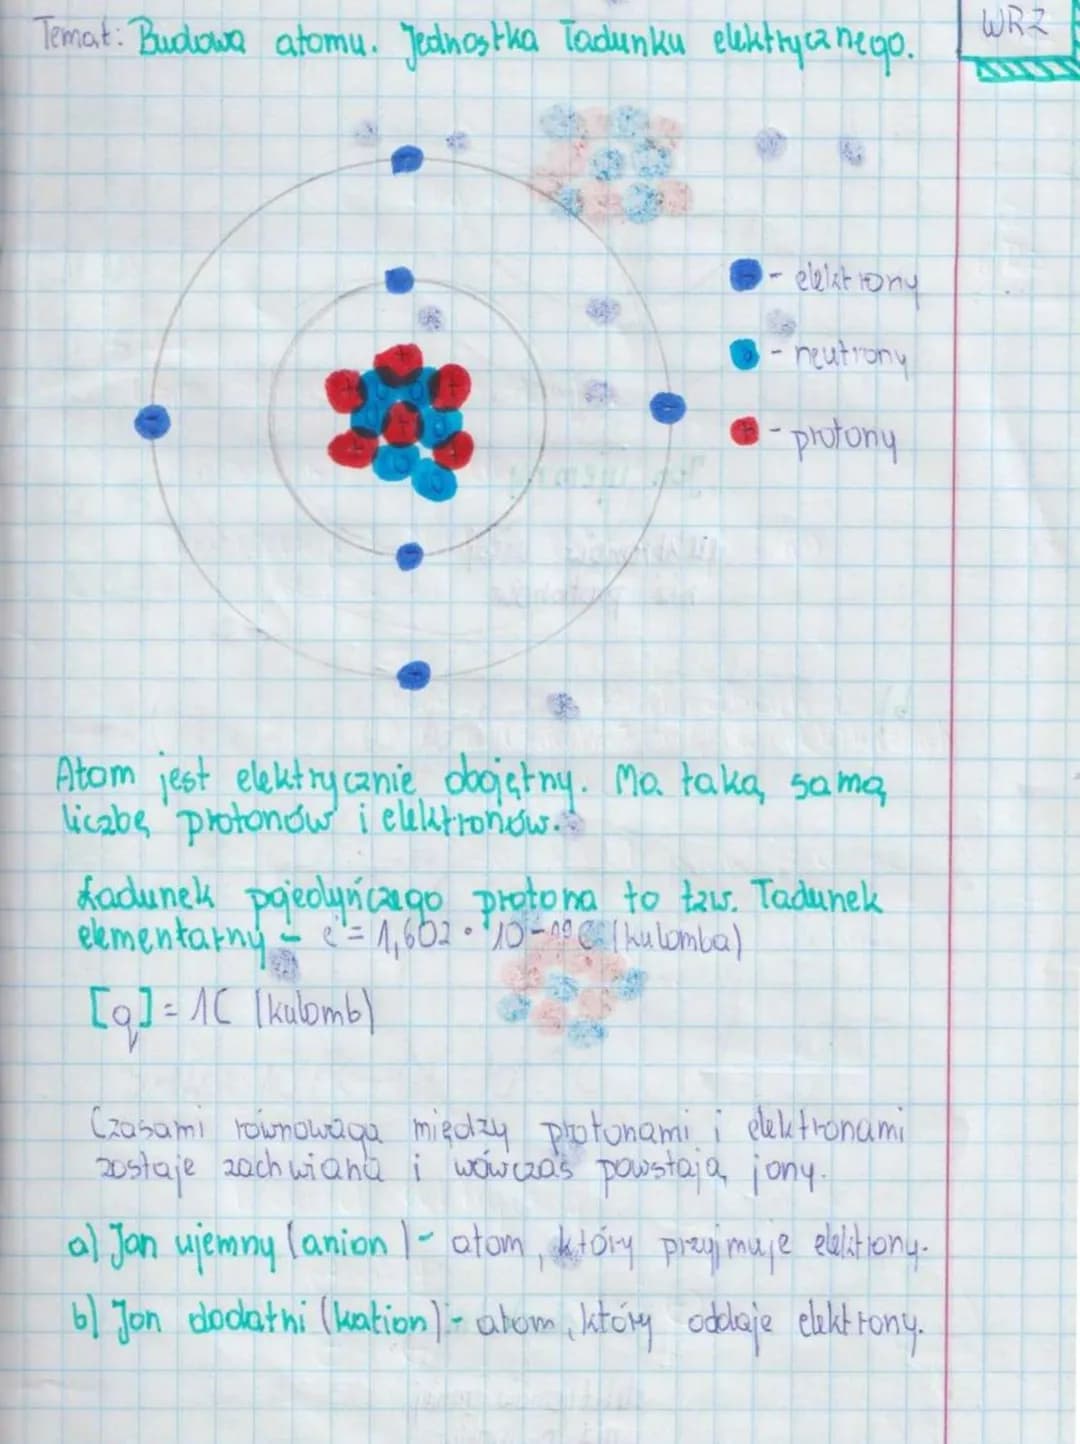 WRZ
Temat: Budowa atomu. Jednostka ładunku elektrycznego.
- elektrony
- neutrony
- protony
Atom jest elektrycznie obojętny. Ma taką samą
liczbę protonów i elektronów.
Ładunek pojedyńczego protona to tzw. ładunek
elementarny - e = 1,602 • 10-19 C (kulomba)
[q] = 1C (kulomb)
Czasami równowaga między protonami i elektronami
zostaje zachwiana i wówczas powstają jony.
a) Jon ujemny (anion) - atom, który przyjmuje elektrony.
b) Jon dodatni (kation) - atom, który oddaje elektrony.